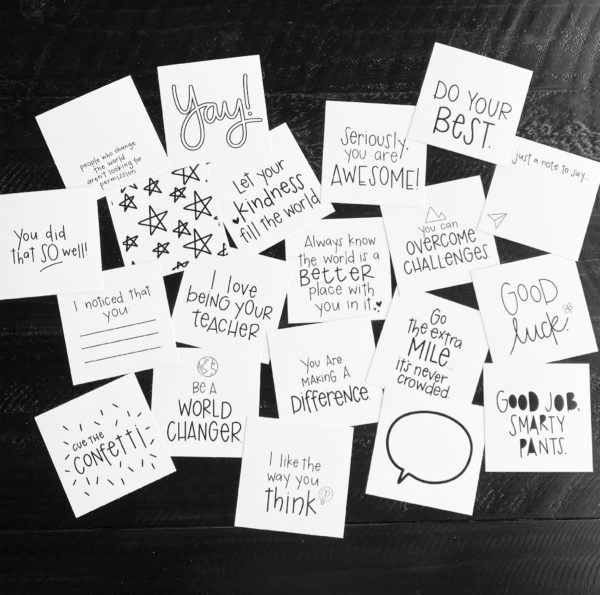 Yay!
DO YOUR
BEST.
people who change
the world
aren't looking for
permission.
Seriously,
you are
AWESOME!
just a note to say...
Let your
kindness
fill the world
You did
that SO well!
you can
OVERCOME
CHALLENGES.
Always know
the world is a
BETTER
place with
you in it.
I love
being YOUR
TEACHER
I noticed that
you
GOOD
luck.
Go
the extra
MILE...
it's never
crowded.
You Are
MAKING A
DIFFERENCE.
BE A
WORLD
CHANGER
GOOD JOB,
SMARTY
PANTS.
CUE THE
CONFETTI
I like the
way you
think